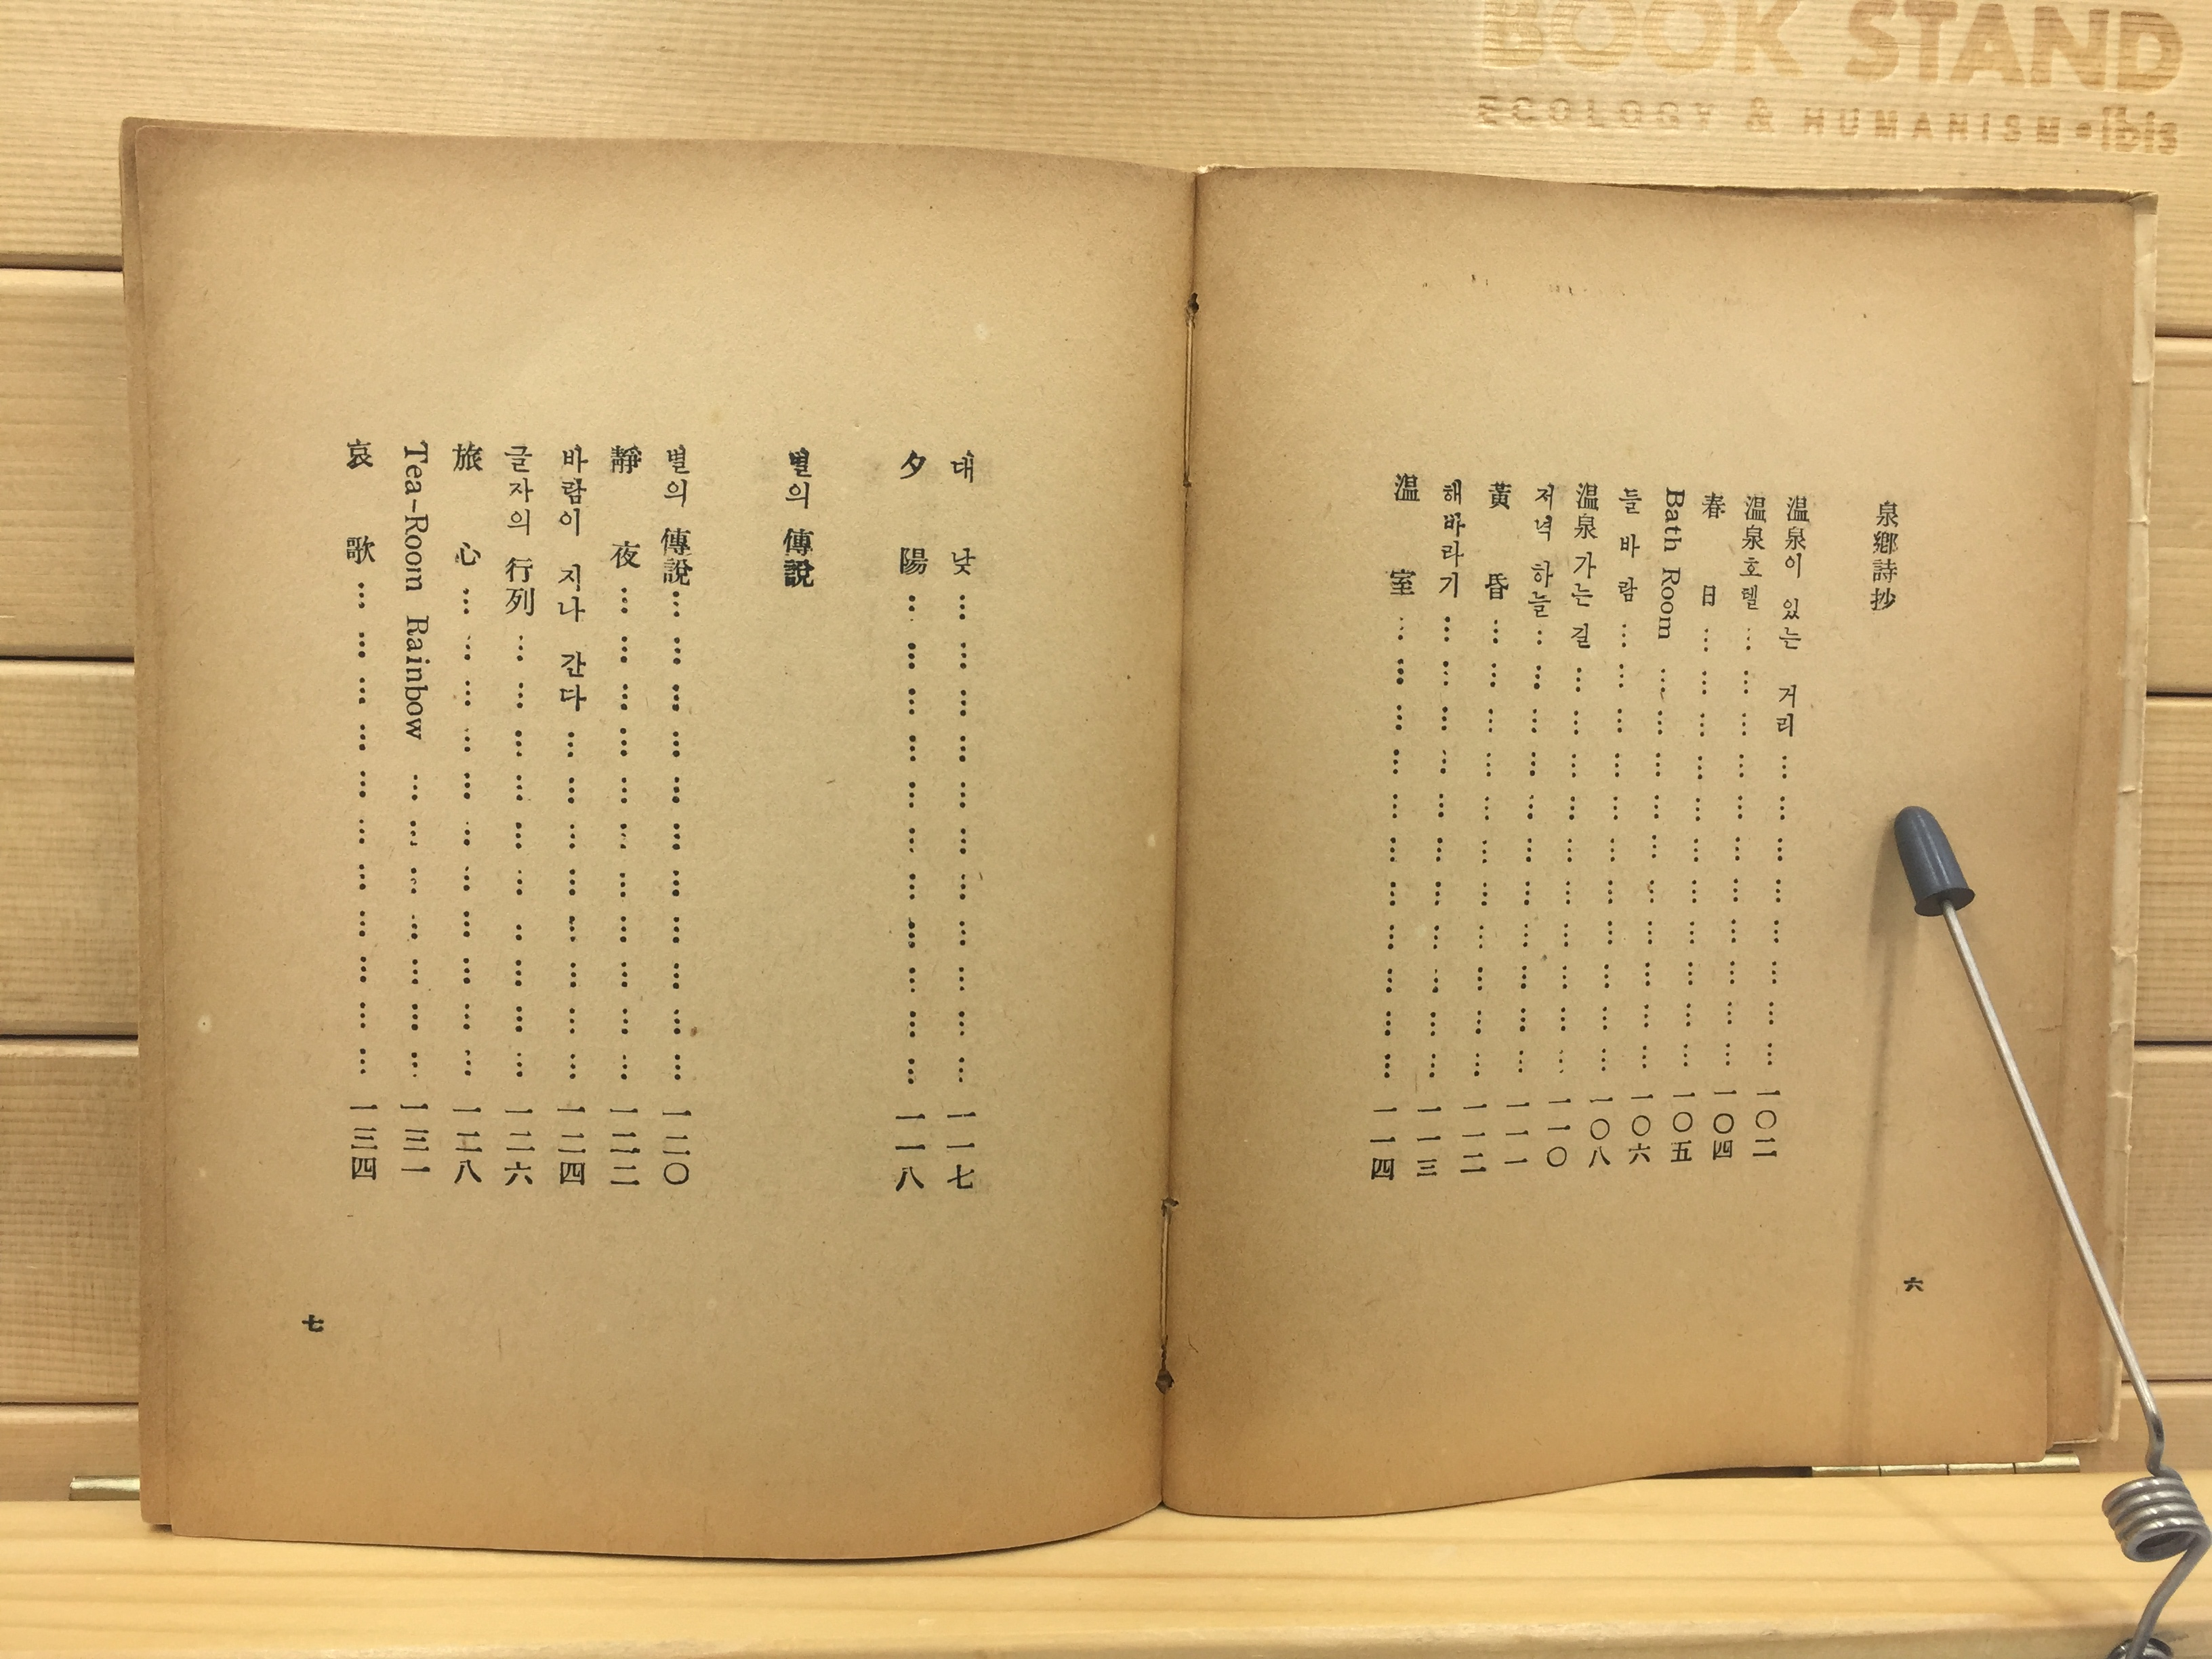 BOOK STAND
ECOLOGY & HUMANISM • ibis
泉鄕詩抄
温泉이 있는 거리 ………………………… 一〇二
温泉호텔 ………………………… 一〇四
春日 ………………………… 一〇五
Bath Room ………………………… 一〇六
들바람 ………………………… 一〇八
温泉가는 길 ………………………… 一一〇
저녁 하늘 ………………………… 一一一
黃昏 ………………………… 一一二
해바라기 ………………………… 一一三
温室 ………………………… 一一四
六
대낮 ………………………… 一一七
夕陽 ………………………… 一一八
별의 傳說
별의 傳說 ………………………… 一二〇
靜夜 ………………………… 一二二
바람이 지나 간다 ………………………… 一二四
글자의 行列 ………………………… 一二六
旅心 ………………………… 一二八
Tea-Room Rainbow ………………………… 一三一
哀歌 ………………………… 一三四
七